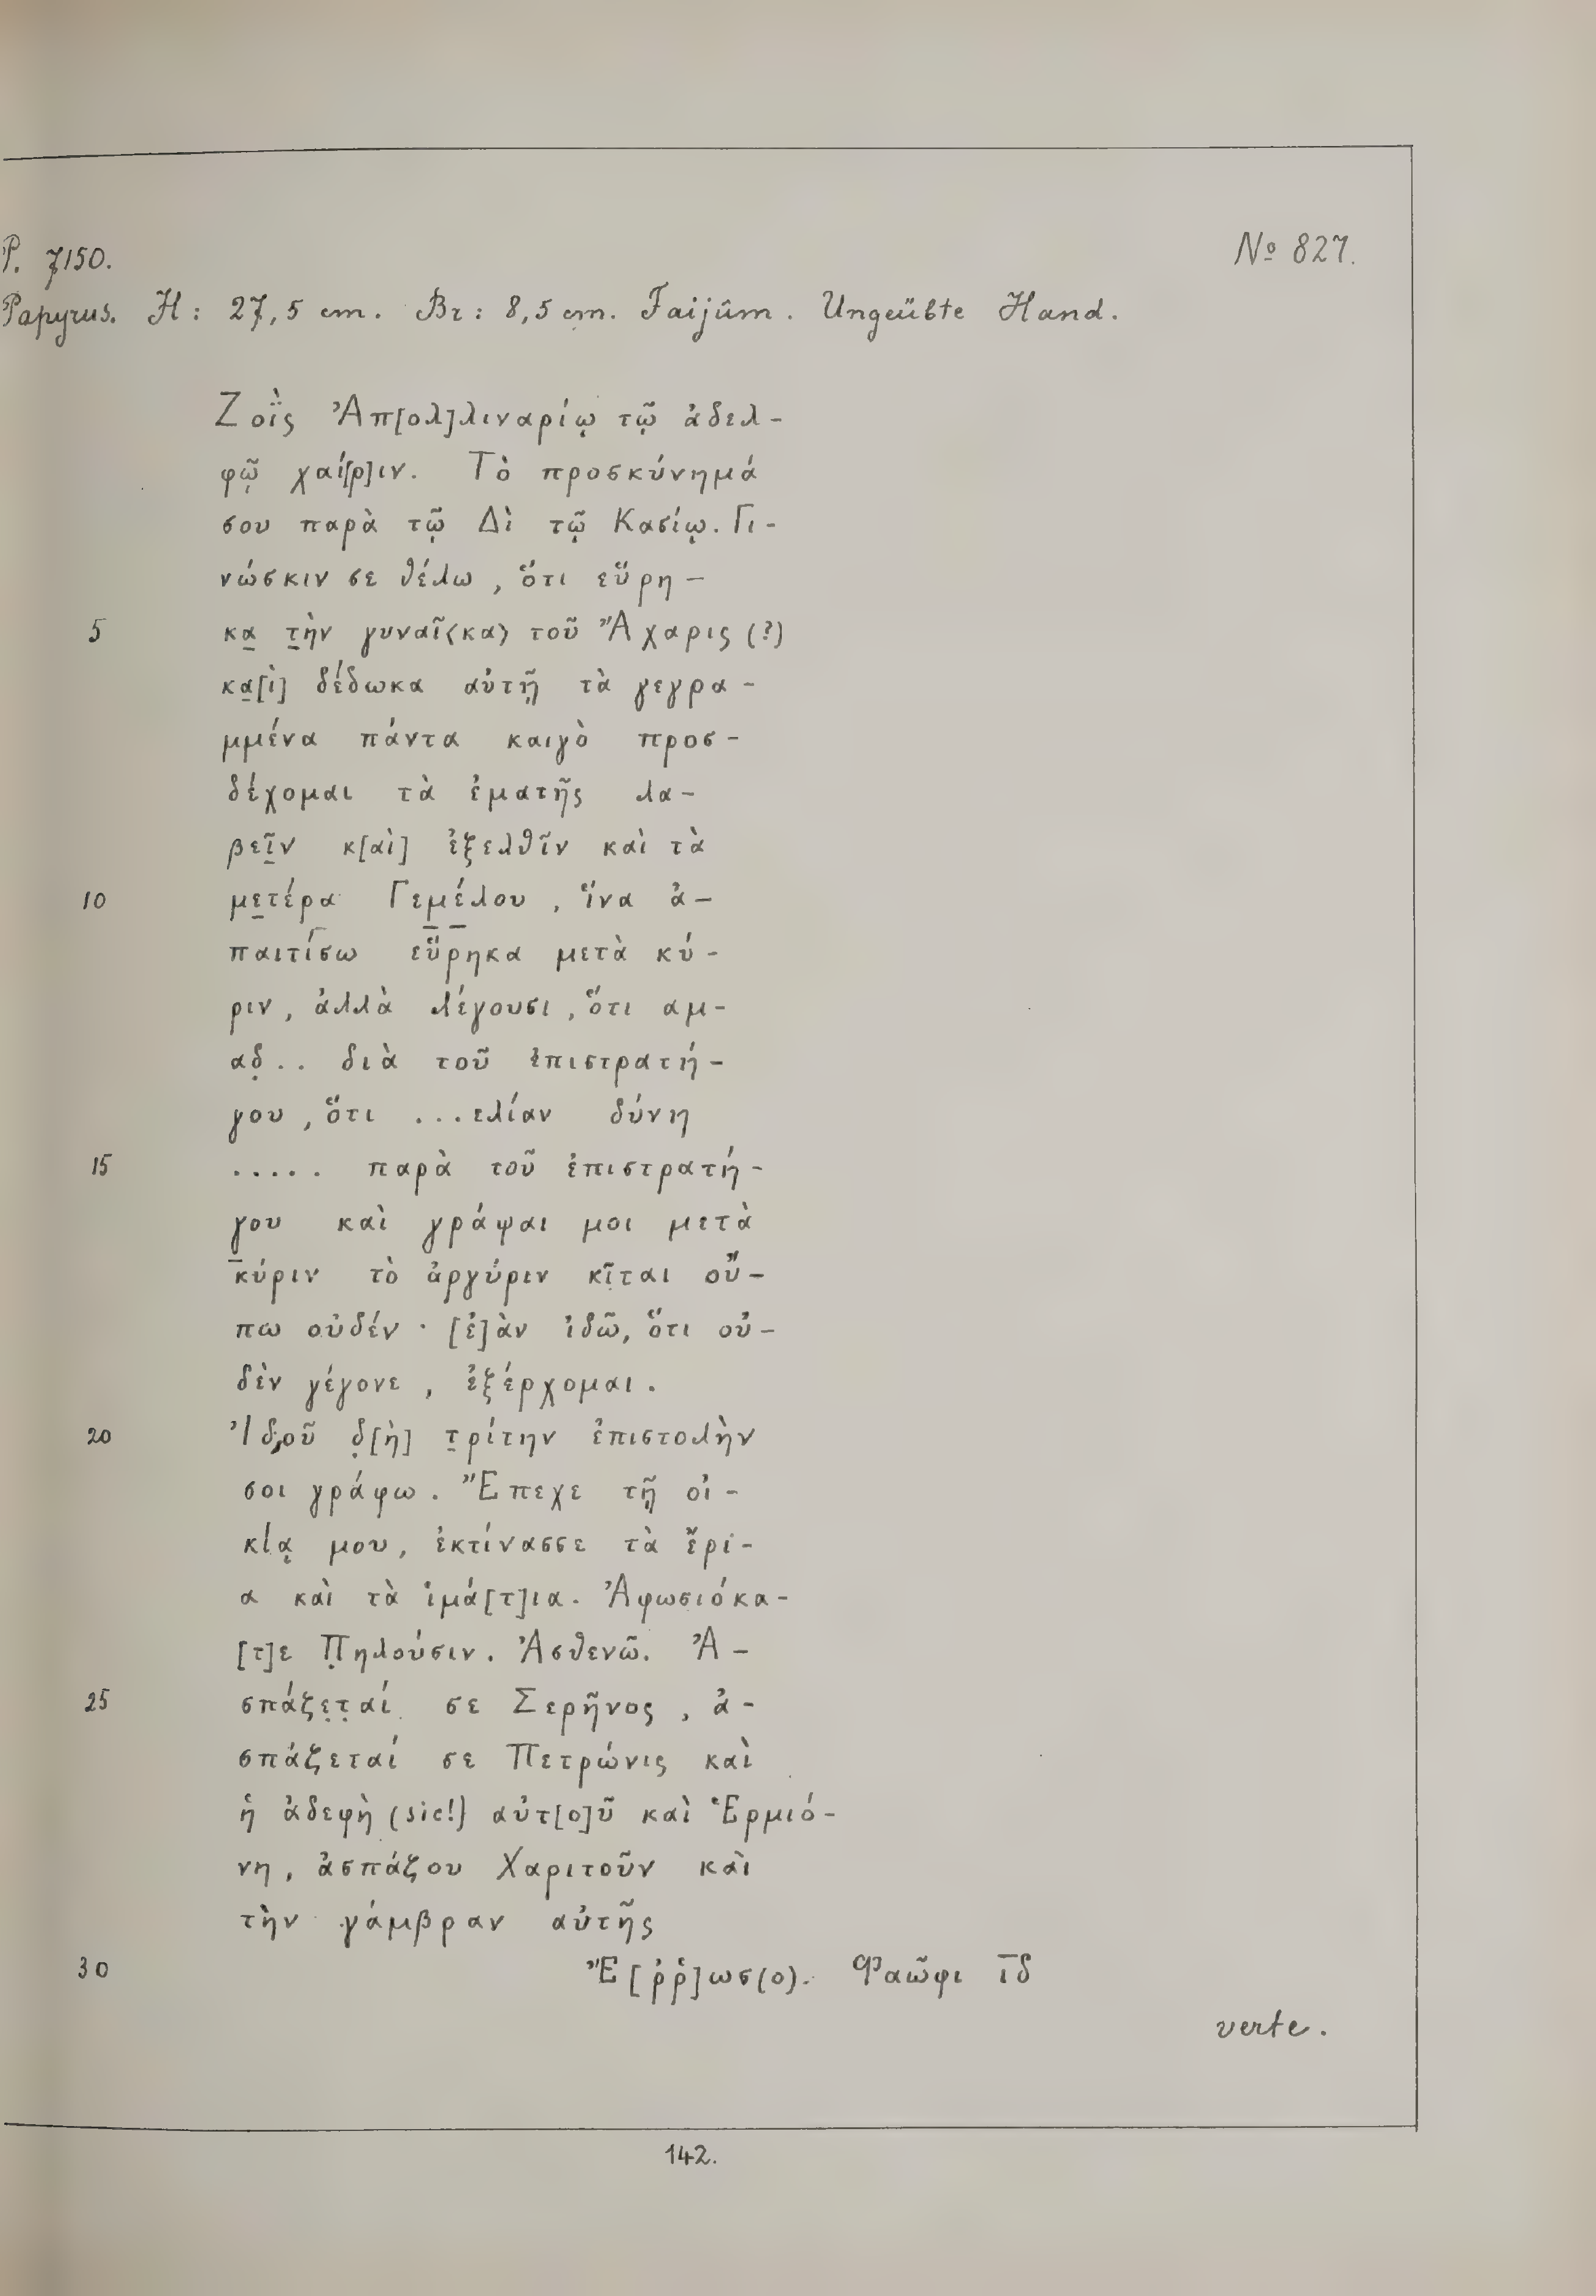 P. 7150.
No 827.
Papyrus. H: 27,5 cm. Br: 8,5 cm. Faijûm. Ungeübte Hand.
Ζοῒς Ἀπ[ολ]λιναρίῳ τῷ ἀδελ-
φῷ χαί[ρ]ιν. Τὸ προσκύνημά
σου παρὰ τῷ Δὶ τῷ Κασίῳ. Γι-
νώσκιν σε θέλω, ὅτι εὕρη-
5 κα̣ τ̣ὴν γυναῖ⟨κα⟩ τοῦ Ἄχαρις (?)
κα̣[ὶ] δέδωκα αὐτῇ τὰ γεγρα-
μμένα πάντα καιγὸ προσ-
δέχομαι τὰ ἐματῆς λα-
βεῖ̣ν κ[αὶ] ἐξελθῖν καὶ τὰ
10 με̣τέρα Γεμέλου, ἵνα ἀ-
παιτίσω εὕρηκα μετὰ κύ-
ριν, ἀλλὰ λέγουσι, ὅτι αμ-
αδ̣.. διὰ τοῦ ἐπιστρατή-
γου, ὅτι ...ελίαν δύνη
15 ..... παρὰ τοῦ ἐπιστρατή-
γου καὶ γράψαι μοι μετὰ
κύριν τὸ ἀργύριν κῖται οὔ-
πω οὐδέν· [ἐ]ὰν ἰδῶ, ὅτι οὐ-
δὲν γέγονε, ἐξέρχομαι.
20 Ἰδοῦ δ̣[ὴ] τ̣ρίτην ἐπιστολὴν
σοι γράφω. Ἔπεχε τῇ οἰ-
κίᾳ μου, ἐκτίνασσε τὰ ἔρι-
α καὶ τὰ ἱμά[τ]ια. Ἀφωσιόκα-
[τ]ε Π̣ηλούσιν. Ἀσθενῶ. Ἀ-
25 σπάζε̣τ̣αί σε Σερῆνος, ἀ-
σπάζεταί σε Πετρώνις καὶ
ἡ ἀδεφὴ (sic!) αὐτ[ο]ῦ καὶ Ἑρμιό-
νη, ἀσπάζου Χαριτοῦν καὶ
τὴν γάμβραν αὐτῆς
30 Ἔ[ῤῥ]ωσ(ο). Φαῶφι ι̅δ
verte.
142.